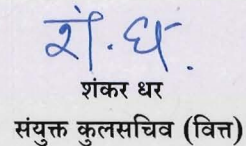 शं. ध.
शंकर धर
संयुक्त कुलसचिव (वित्त)